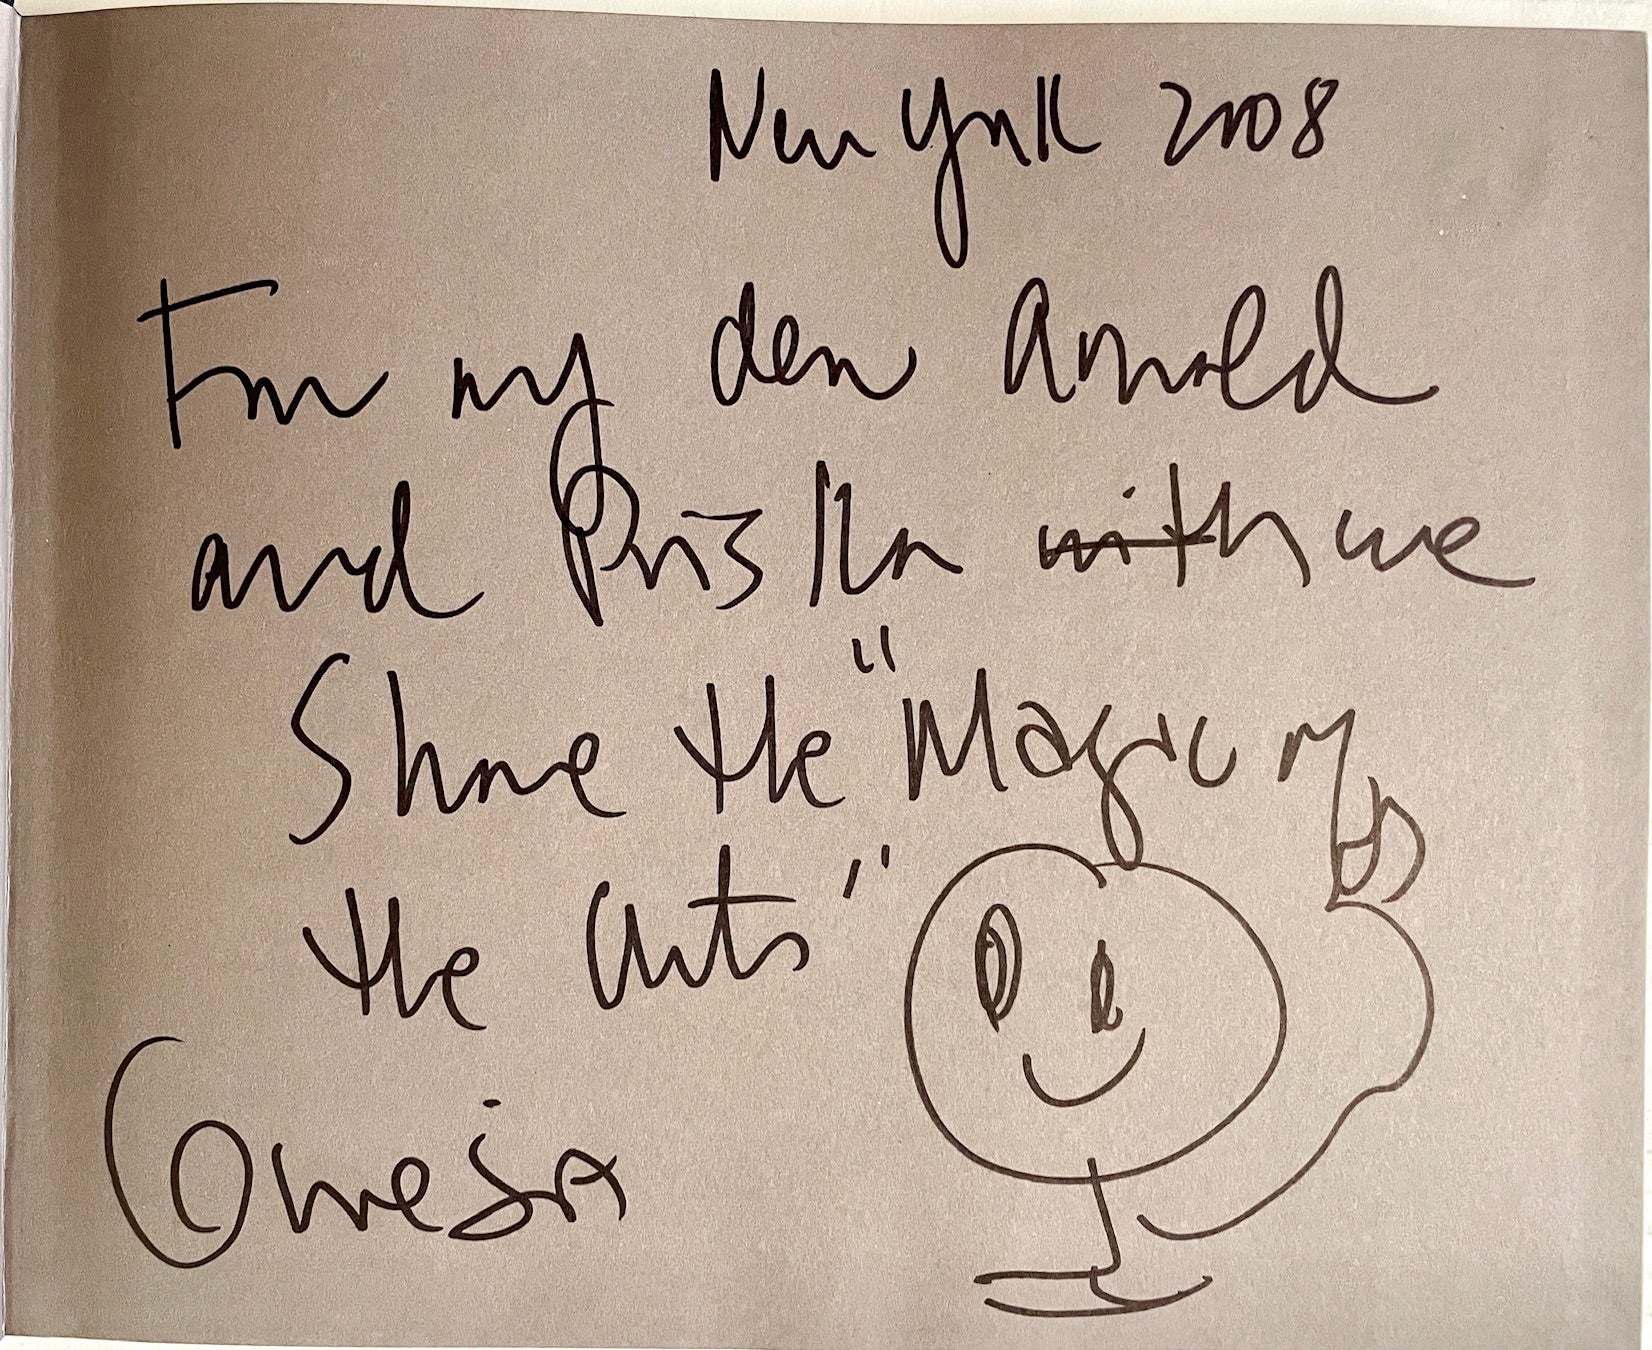 New York 2008
For my dear Arnold
and Priszilla with we
Share the "Magic of
the Arts"